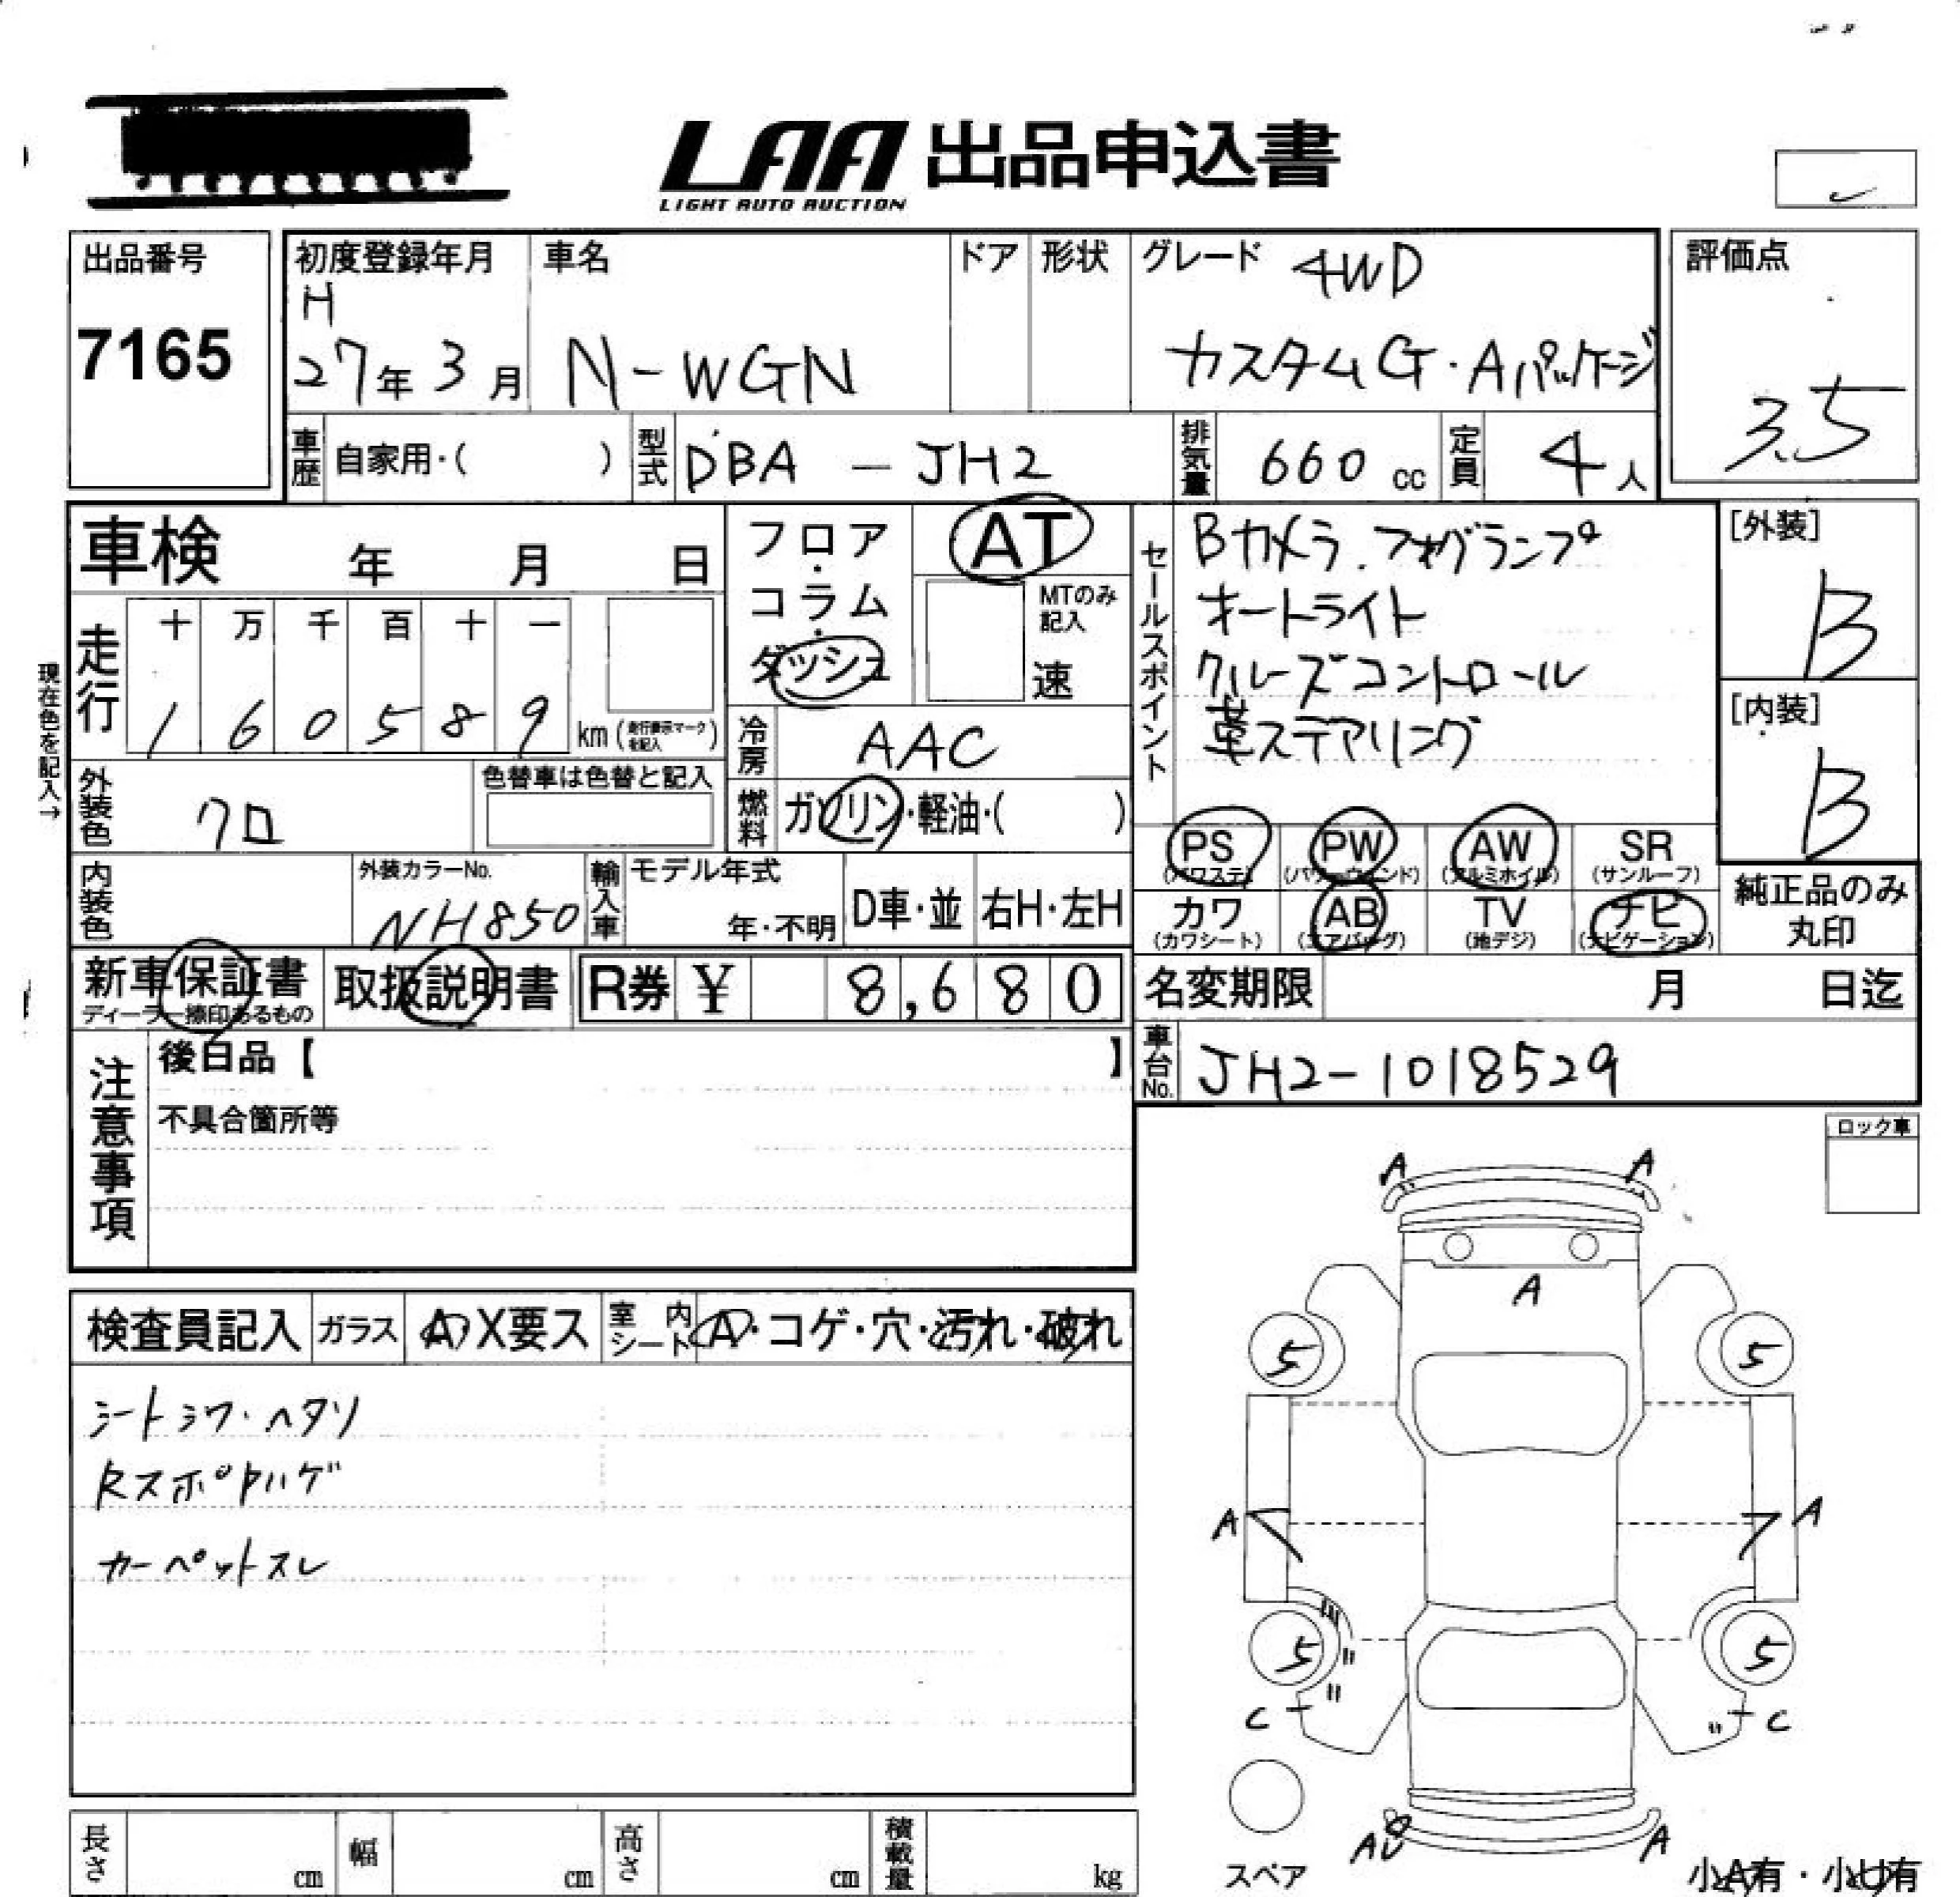 LAA 出品申込書
LIGHT AUTO AUCTION
出品番号
7165
初度登録年月
H
27年 3月
車名
N-WGN
ドア
形状
グレード 4WD
カスタムG・Aパッケージ
評価点
3.5
車歴
自家用・( )
型式
DBA - JH2
排気量
660 cc
定員
4人
車検 年 月 日
現在色を記入→
走行
十 万 千 百 十 一
1 6 0 5 8 9 km
外装色
クロ
色替車は色替と記入
内装色
外装カラーNo.
NH850
輸入車
モデル年式
年・不明
D車・並
右H・左H
フロア・コラム・ダッシュ
AT
MTのみ記入
速
冷房
AAC
燃料
ガソリン・軽油・( )
セールスポイント
Bカメラ.フォグランプ
オートライト
クルーズコントロール
革ステアリング
[外装]
B
[内装]
B
PS
(パワステ)
PW
(パワーウィンド)
AW
(アルミホイル)
SR
(サンルーフ)
カワ
(カワシート)
AB
(エアバッグ)
TV
(地デジ)
ナビ
(ナビゲーション)
純正品のみ
丸印
新車保証書
ディーラー捺印あるもの
取扱説明書
R券 ¥ 8,680
名変期限 月 日迄
車台No.
JH2-1018529
注意事項
後日品【 】
不具合箇所等
ロック車
検査員記入
ガラス
A・X要ス
室内シート
A・コゲ・穴・汚れ・破れ
シートシワ・ヘタリ
カーペットスレ
A
A
A
5
5
A
A
5
5
C
C
A
スペア
小A有・小U有
長さ
cm
幅
cm
高さ
cm
積載量
kg